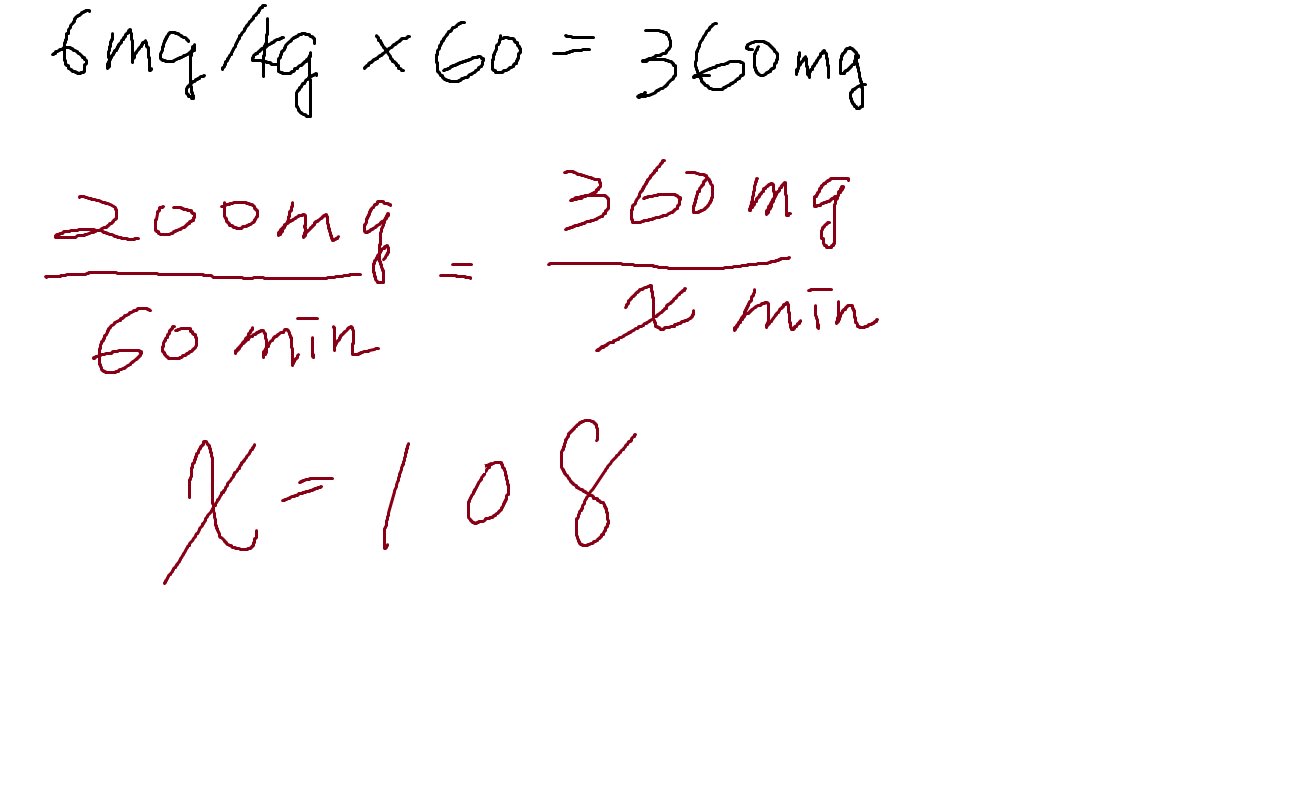 6mg/kg × 60 = 360mg
200mg/60 min = 360mg/x min
x = 108